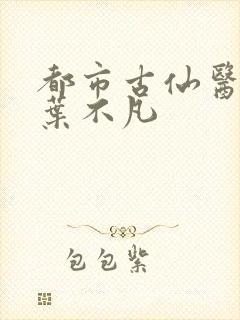 都市古仙醫
葉不凡
包包紫